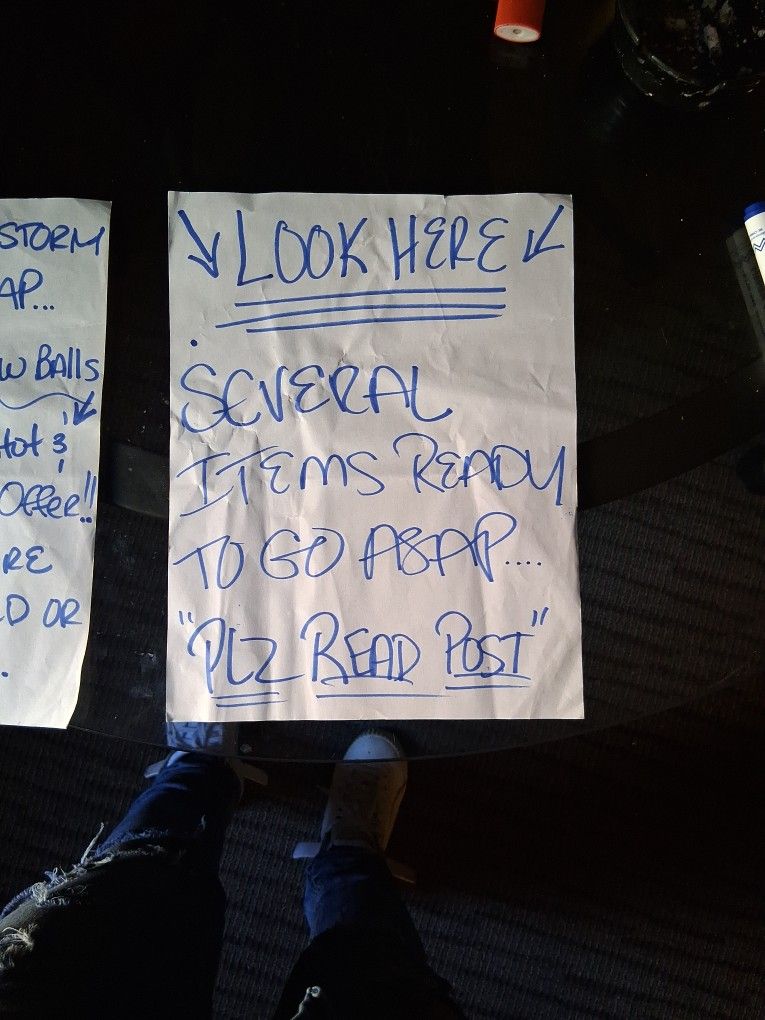 STORM
AP...
W BAlls
Hot &
Offer!!
RE
D OR
.
LOOK HERE
SEVERAL
ITEMS READY
TO GO ASAP....
"PLZ READ POST"